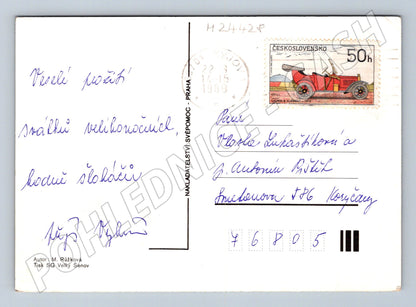 M 24428
Veselé prožití
svátků velikonočních,
hodně šlehačů
Autor: M. Růžková
Tisk SG Velký Šenov
NAKLADATELSTVÍ SVÉPOMOC - PRAHA
ČESKOSLOVENSKO
50h
1989
Paní
Vlasta Lukaštíková a
p. Antonín
Smetanova 586 Koryčany
76805
POHLEDNICE